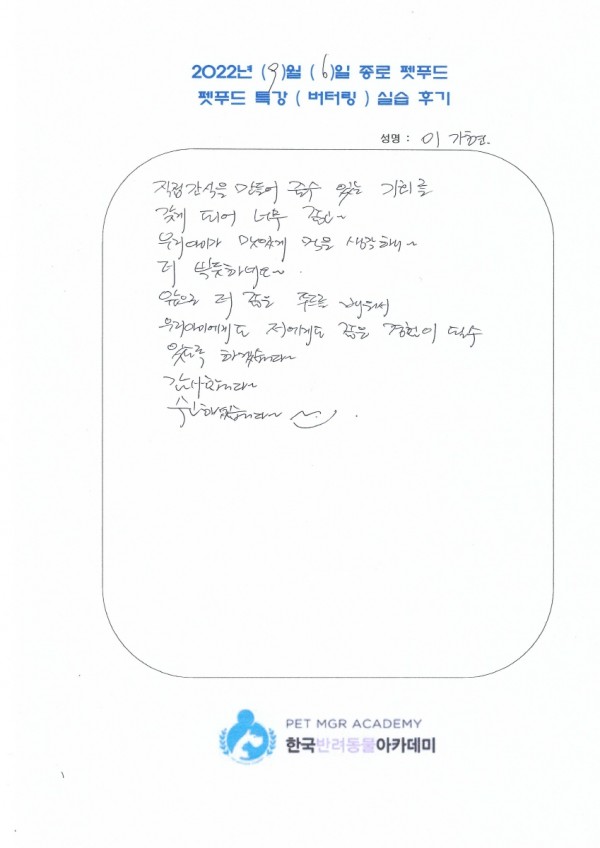 2022년 (9)월 (6)일 종로 펫푸드
펫푸드 특강 ( 버터링 ) 실습 후기
성명 : 이 가현
직접간식을 만들어 줄수 있는 기회를
갖게 되어 너무 좋고~
우리아이가 맛있게 먹을 생각하니~
더 뿌듯하네요~
앞으로 더 좋은 푸드를 배워서
우리아이에게도 저에게도 좋은 경험이 될수
있도록 하겠습니다~
감사합니다~
수고하셨습니다~
PET MGR ACADEMY
한국반려동물아카데미